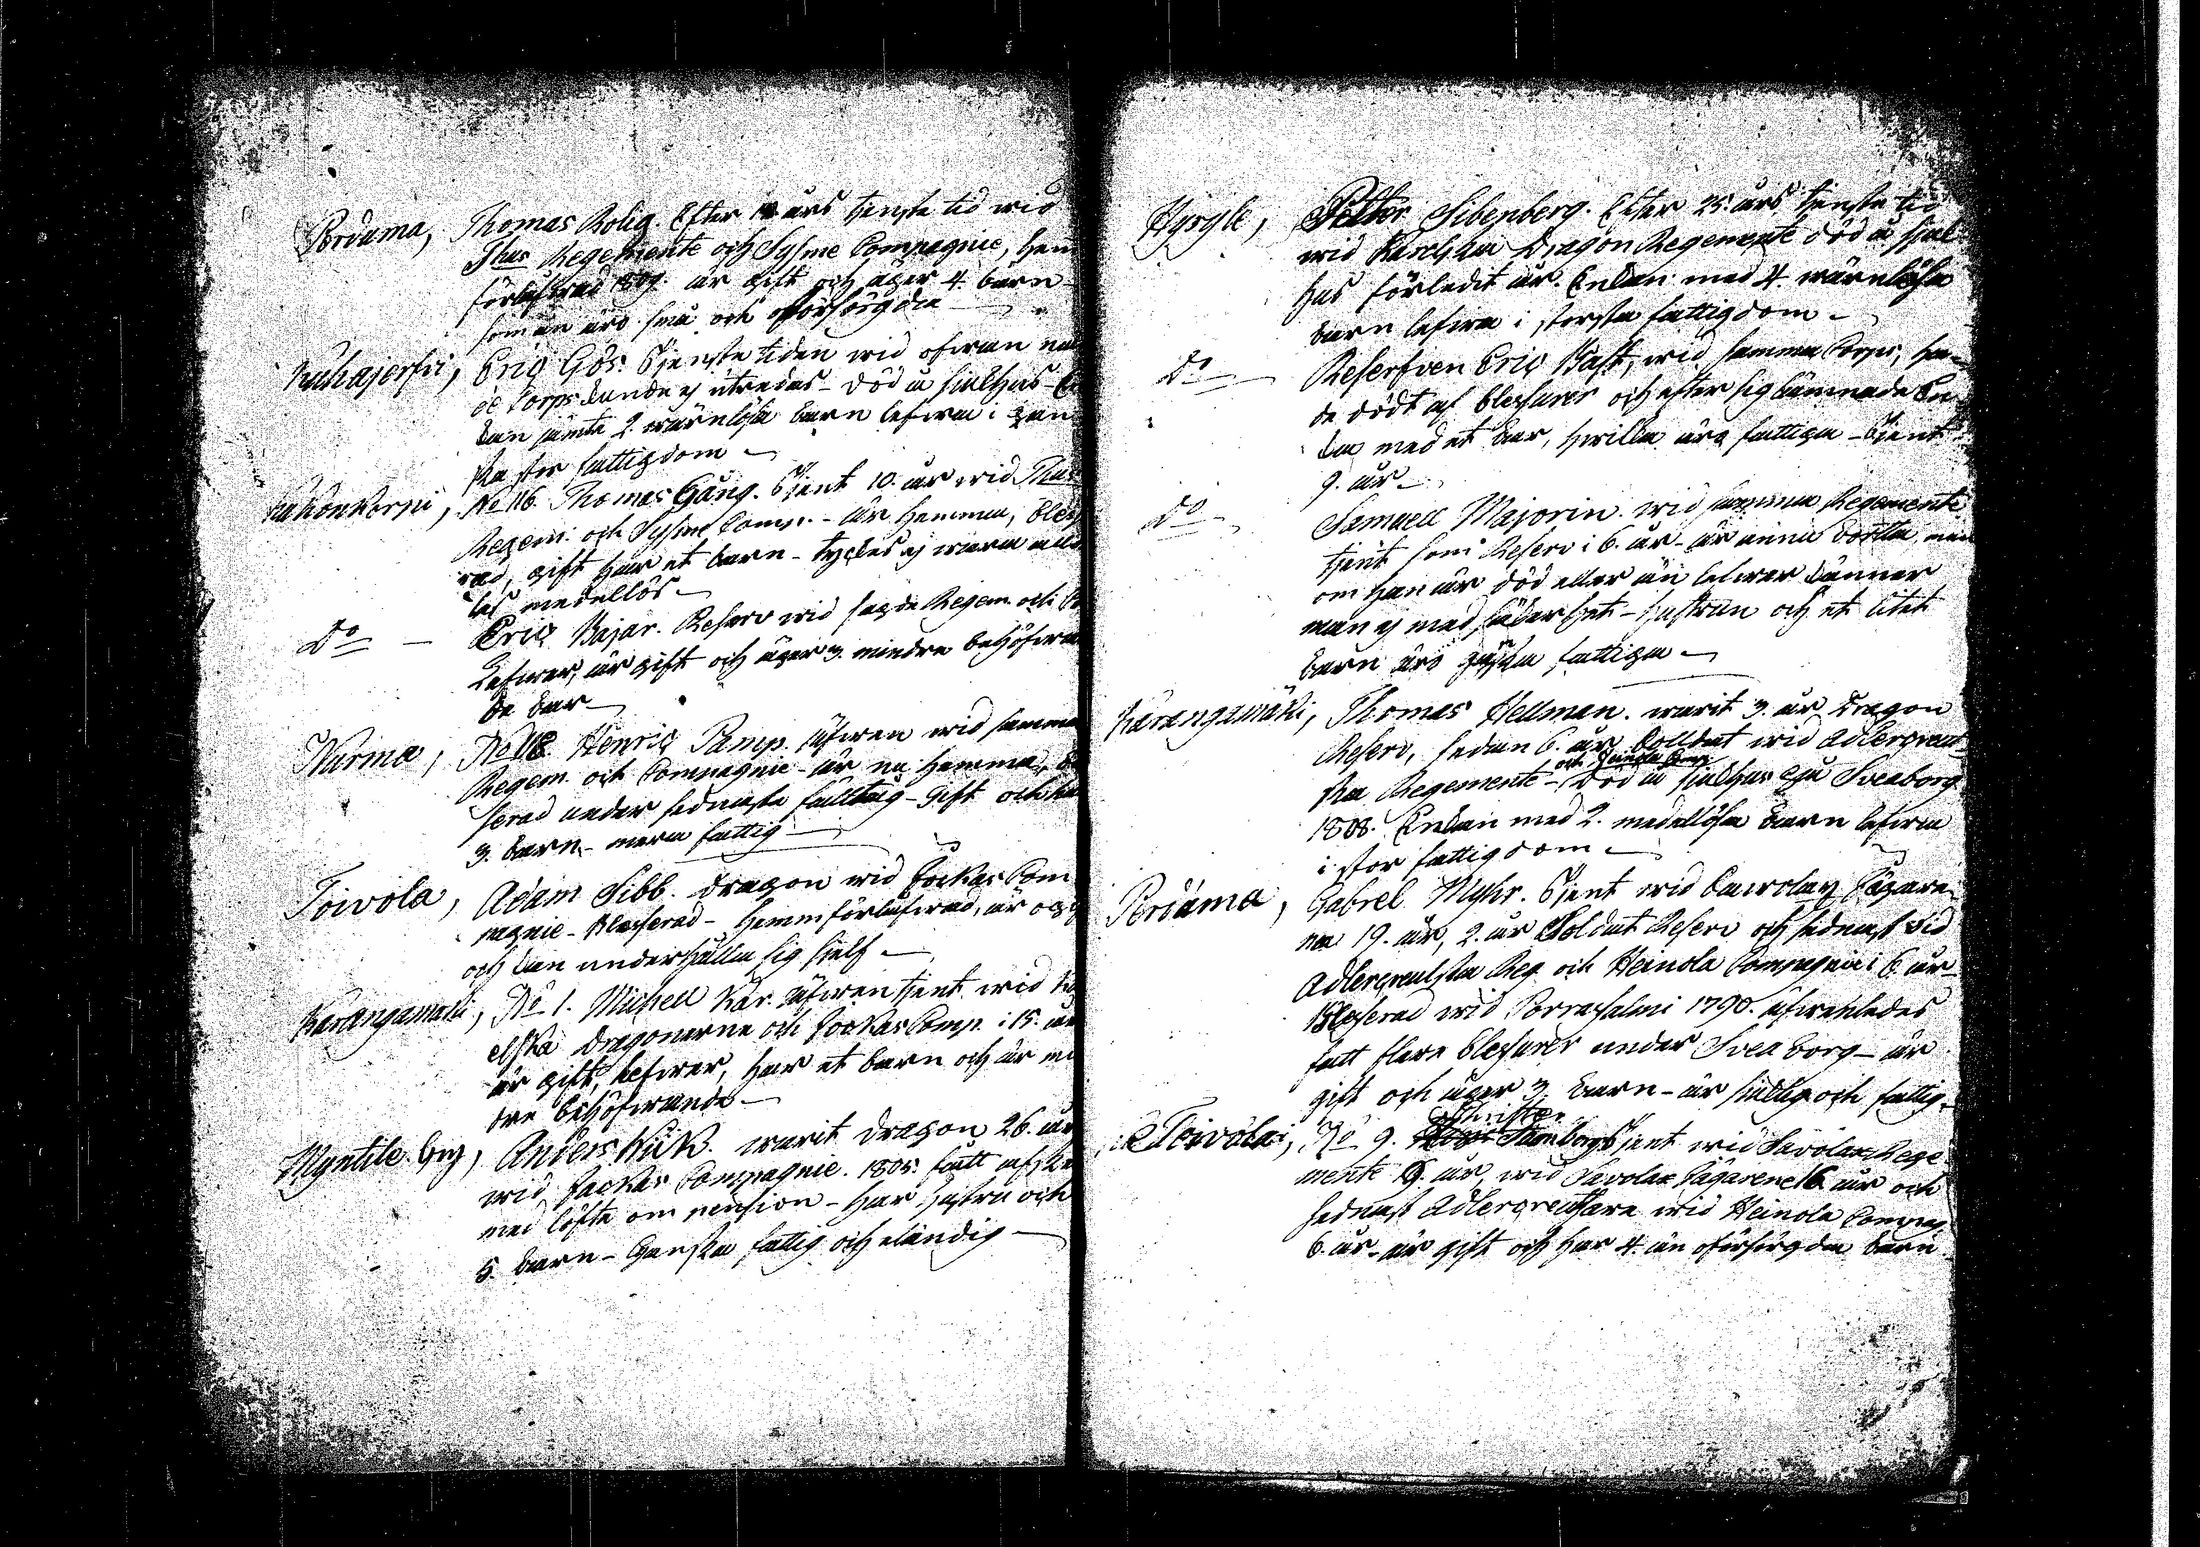 Pordama, Thomas Rolig. Efter 10 års tjenste tid wid
Thus Regemente och Sysme Compagnie, hem
förlofwad 1809. är gift och äger 4. barn
som än äro små och oförsörgda
Eric Gös. Tjenste tiden wid ofwan
de Corps kunde ej utredas - Död å siukhus -
kan jämte 2. wärnlösa barn lefwa i gan
ska stor fattigdom
No 116. Thomas Gång. Tjent 10. år wid Thus
Regem. och Sysme Comp. - är hemma, bles
rad, gift har et barn - tyckes ej wara
les medellös
Do Eric Bajar. Reserv wid sagde Regem. och
Lefwer, är gift och äger 3. mindre behöfwan
de bar
Nurma, No 118 Henric Pamp. äfwen wid samma
Regem. och Compagnie - är nu hemma,
serad under sednaste fälttåg - Gift och
3. barn - mera fattig
Toivola, Adam Sibb. dragon wid Jockas Com
pagnie - Blesserad - hemmförlofwad, är
och kan underhålla sig sjelf
Karangamäki, No 1. Michell Kär. äfwen tjent wid
elska Dragonerne och Jockas Comp. i 15. år
är gift, lefwer, har et barn och är
dre behöfwande
Myntilä By, Anders Kück. warit Dragon 26. år
wid Jockas Compagnie. 1805. fått afsked
med löfte om pension - har hustru och
5. barn - Ganska fattig och eländig
Hyrylä, Petter Sibenberg. Efter 25. års tjenste tid
wid Karelska Dragon Regemente död å siuk
hus förledit år. Enkan med 4. wärnlösa
barn lefwa i största fattigdom
Do Reserfven Eric Bast, wid samma Corps, ha
de dödt af blessurer och efter sig lämnade En
ka med et bar, hwilka äro fattiga - Tjent
9. år
Do Samuell Majorin. wid samma Regemente
tjent som Reserv i 6. år - är ännu borta, men
om han är död eller än lefwer känner
man ej med säkerhet - hustrun och et litet
barn äro ganska fattiga
Karangamäki, Thomas Hellman. warit 3. år Dragon
Reserv, sedan 6. år Solldat wid Adlercreut
och Heinola Comp
ska Regemente - Död å siukhus på Sveaborg
1808. Enkan med 2. medellösa barn lefwa
i stor fattigdom
Pordama, Gabrel Myhr. Tjent wid Sawolax Jägara
na 19. år, 2. år Soldat Reserv och sednast wid
Adlercreutska Reg och Heinola Compagnie i 6. år
Blesserad wid Porrasalmi 1790. äfwenledes
fått flere blessurer under Svea borg - är
gift och äger 3. barn - är siuklig och fattig
Schrifter
Toivola, No 9. Stenborg Tjent wid Savolax Rege
mente 9. år, wid Savolax Jägarene 16 år och
sednast Adlercreutzare wid Heinola Compag
6. år - är gift och har 4. än oförsörgda barn